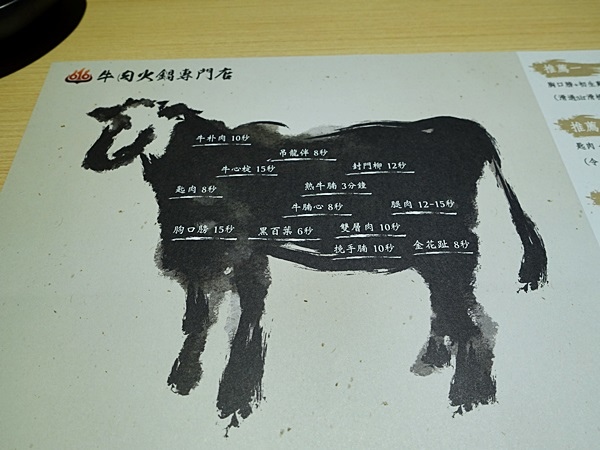 616 牛肉火鍋專門店
牛朴肉 10秒
吊龍伴 8秒
牛心椗 15秒
封門柳 12秒
匙肉 8秒
熟牛腩 3分鐘
牛腩心 8秒
腿肉 12-15秒
胸口朥 15秒
黑百葉 6秒
雙層肉 10秒
挽手腩 10秒
金花趾 8秒
推薦一
胸口朥+
推薦
匙肉